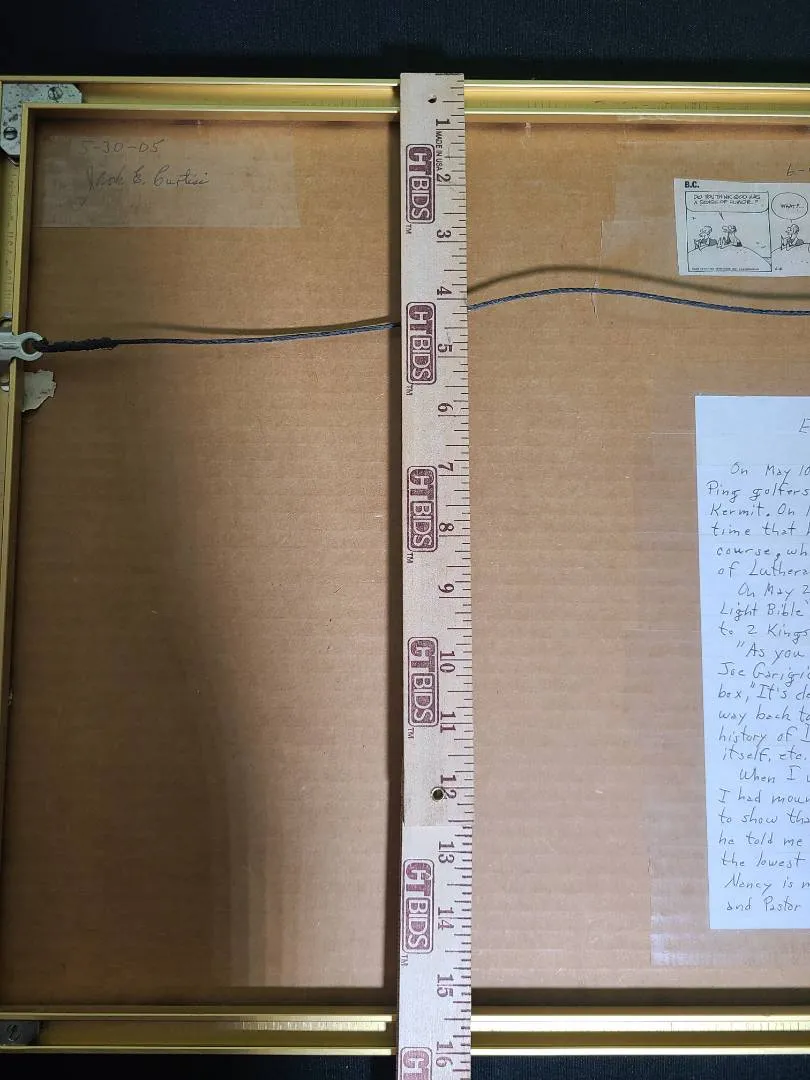 5-30-05
Jack E. Curtis
B.C.
DO YOU THINK GOD HAS
A SENSE OF HUMOR..?
WHAT?..
1
MADE IN USA
2
CTBIDS
TM
3
4
CTBIDS
TM
5
6
7
CTBIDS
TM
8
9
10
CTBIDS
TM
11
12
13
CTBIDS
TM
14
15
16
CTBIDS
On May 10
Ping golfers
Kermit. On
time that
course, wh
of Luthera
On May 2
Light Bible
to 2 Kings
"As you
Joe
box, "It's
way back to
history of
itself, etc.
When I
I had moun
to show tha
he told me
the lowest
Nancy is
and Pastor